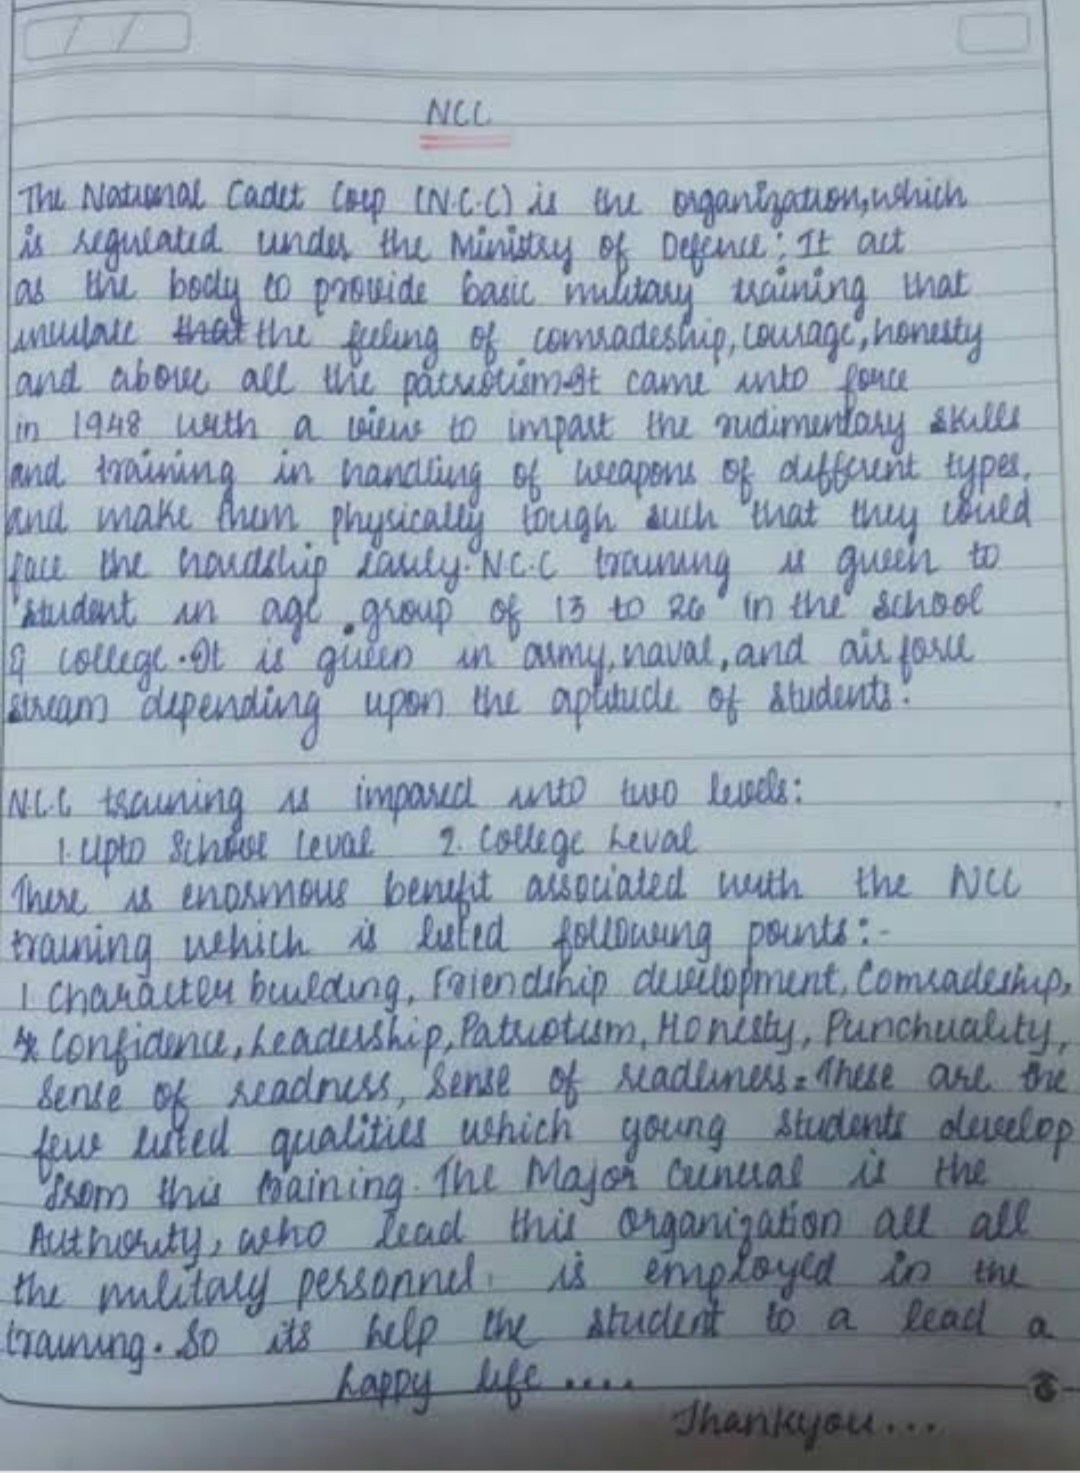 NCC
The National Cadet Corp (N.C.C) is the organization, which
is regulated under the Ministry of Defence: It act
as the body to provide basic military training that
inculate that the feeling of comradeship, courage, honesty
and above all the patriotism. It came into force
in 1948 with a view to impart the rudimentary skills
and training in handling of weapons of different types,
and make them physically tough such that they could
face the hardship easily. N.C.C training is gueen to
student in age group of 13 to 26 in the school
& college. It is gueen in army, naval, and air force
stream depending upon the aptitude of students.
N.C.C training is impared into two levels:
1. Upto School Leval 2. College Leval
There is enormous benefit associated with the NCC
training which is listed following points:-
1 Character building, Friendship development, Comradeship,
Confidence, Leadership, Patriotism, Honesty, Punchuality,
Sense of readness, Sense of readliness. These are the
few listed qualities which young students develop
from this training. The Major General is the
Authority, who lead this organization all all
the military personnel. is employed in the
training. So its help the student to a lead a
happy life ....
Thankyou...